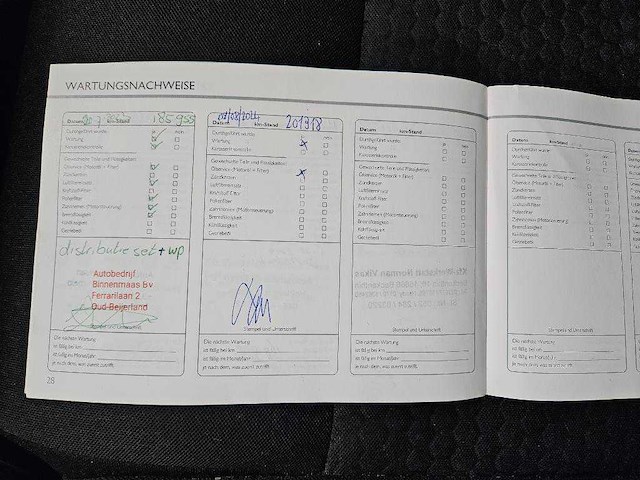 WARTUNGSNACHWEISE
Datum km-Stand 185955
Durchgeführt wurde: ja nein
Wartung
Karosseriekontrolle
Gewechselte Teile und Flüssigkeiten:
Ölservice (Motoröl + Filter)
Zündkerzen
Luftfiltereinsatz
Kraftstofffilter
Pollenfilter
Zahnriemen (Motorsteuerung)
Bremsflüssigkeit
Kühlflüssigkeit
Getriebeöl
distributie set + wp
Autobedrijf
Binnenmaas Bv
Ferrarilaan 2
Oud-Beijerland
Stempel und Unterschrift
Die nächste Wartung
ist fällig bei km:
ist fällig im Monat/Jahr:
je nach dem, was zuerst zutrifft
28
Datum km-Stand 201318
Durchgeführt wurde: ja nein
Wartung
Karosseriekontrolle
Gewechselte Teile und Flüssigkeiten:
Ölservice (Motoröl + Filter)
Zündkerzen
Luftfiltereinsatz
Kraftstofffilter
Pollenfilter
Zahnriemen (Motorsteuerung)
Bremsflüssigkeit
Kühlflüssigkeit
Getriebeöl
Stempel und Unterschrift
Die nächste Wartung
ist fällig bei km:
ist fällig im Monat/Jahr:
je nach dem, was zuerst zutrifft
Datum km-Stand
Durchgeführt wurde: ja nein
Wartung
Karosseriekontrolle
Gewechselte Teile und Flüssigkeiten:
Ölservice (Motoröl + Filter)
Zündkerzen
Luftfiltereinsatz
Kraftstofffilter
Pollenfilter
Zahnriemen (Motorsteuerung)
Bremsflüssigkeit
Kühlflüssigkeit
Getriebeöl
Stempel und Unterschrift
Die nächste Wartung
ist fällig bei km:
ist fällig im Monat/Jahr:
je nach dem, was zuerst zutrifft
Datum km-Stand
Durchgeführt wurde: ja nein
Wartung
Karosseriekontrolle
Gewechselte Teile und Flüssigkeiten:
Ölservice (Motoröl + Filter)
Zündkerzen
Luftfiltereinsatz
Kraftstofffilter
Pollenfilter
Zahnriemen (Motorsteuerung)
Bremsflüssigkeit
Kühlflüssigkeit
Getriebeöl
Stempel und Unterschrift
Die nächste Wartung
ist fällig bei km:
ist fällig im Monat/Jahr:
je nach dem, was zuerst zutrifft